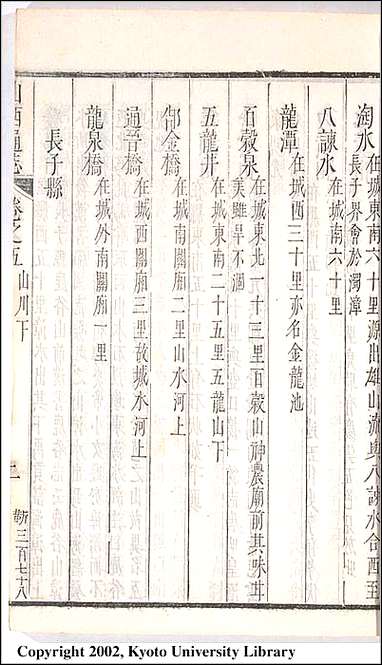 淘水在城東南六十里源出雄山流與八諫水合西至
長子界會於濁漳
八諫水在城南六十里
龍潭在城西三十里亦名金龍池
百穀泉在城東北一十三里百穀山神農廟前其味甘
美雖旱不涸
五龍井在城東南二十五里五龍山下
郜金橋在城南關廂二里山水河上
通晉橋在城西關廂三里故城水河上
龍泉橋在城外南關廂一里
長子縣
山西通志 卷之五 山川下
三百七十八
Copyright 2002, Kyoto University Library